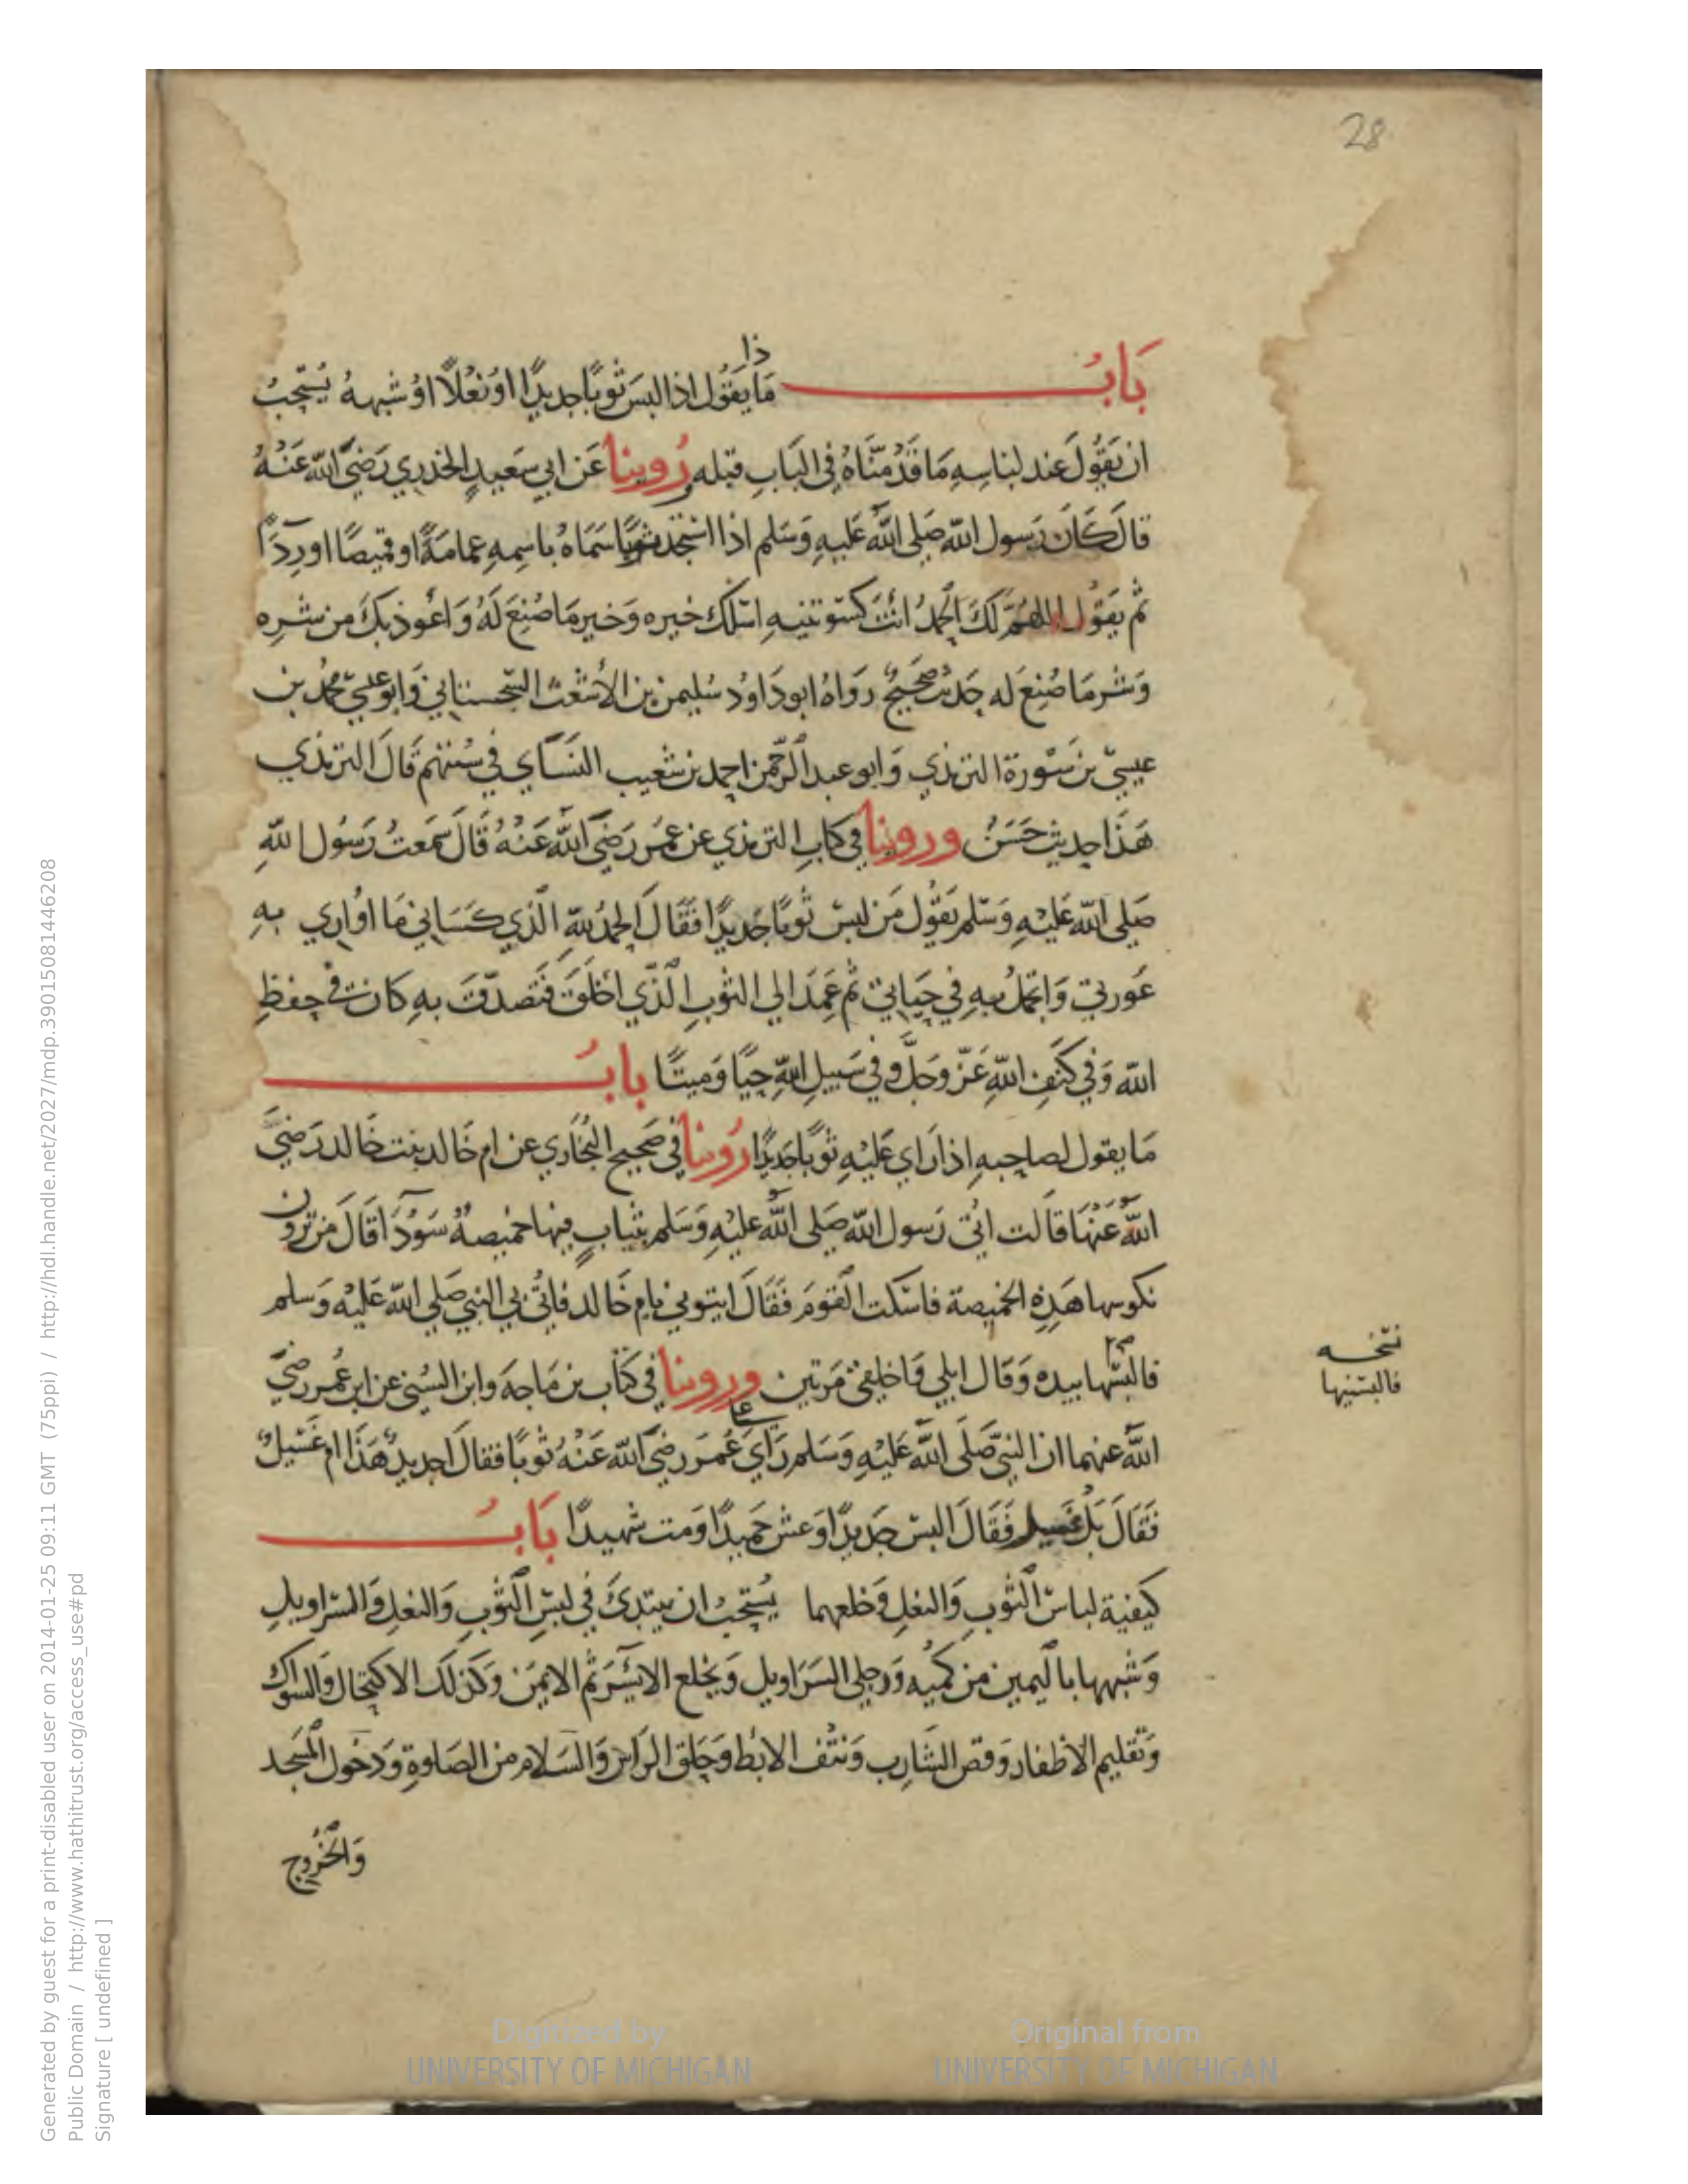 28
ذا
بَابُ مَا يَقُول اذا لبسَ ثوبًا جديدًا اوْ نعْلاً اوْ شبههُ يُسْتحبُ
ان يَقُولَ عند لبَاسِهِ مَا قَدْ مْنَاهُ فِى البَابِ قبله رُوينا عَن ابي سَعيدٍ الخدري رَضيَ الله عَنْهُ
قالَ كَانَ رَسول الله صَلى اللهُ عَليهِ وَسَلم اذا استجد ثوبًا سَمَاهُ باسِمهِ عمَامَةً او قميصًا او رِدَآً
ثم يَقوُل اللهُمَّ لَكَ الحمدُ انْتَ كسَوتنيهِ اسْلك خيره وَخير مَا صُنِعَ لَهُ وَاعُوذ بكَ من شرِه
وَشر مَا صُنِعَ له حَديثٌ صَحيحٌ روَاهُ ابو دَاوُد سُليمن بن الأشعَث السّجستاني وَابو عيسَي محمُد بن
عيسيَ بن سَوْرة الترمذي وَابو عبد الرَّحمن احمد بن شعَيب النسَآي في سُننهم قالَ الترمذي
هَذَا حديث حَسَنُ وروينا في كتابِ الترمذي عن عمُرَ رَضيَ اللهُ عَنْهُ قَالَ سمَعتُ رَسُول اللهِ
صَلى الله عَليْهِ وَسَلم يَقُول مَن لبسَ ثوبًا جَديدًا فَقَالَ الحمدُ للهِ الَّذي كسَاني مَا اوُارِي بهِ
عَورتي وَاتجملُ بهِ في حَيَاتي ثم عَمَدَ الي الثوبِ الَّذي اخْلَقَ فَتصَدقَ بهِ كان في حِفظِ
الله وَفي كَنَفِ اللهِ عَزّ وَجَلَّ وفي سَبيلِ اللهِ حيًا وَميتًا بابُ
مَا يقول لصاحبهِ اذا رَاي عَليْهِ ثوبًا جَديًا رُوينا في صَحيح البُخاري عن ام خَالد بنت خَالد رَضيَ
اللهُ عَنهَا قالت اتي رَسول الله صَلى اللهُ عليْهِ وَسَلم بثيابٍ فيها خميصةٌ سَوْدَآ قالَ من ترَون
نكوسها هَذِهِ الخميصة فاسْكت القومَ فَقَالَ ايتوني بام خَالد فاتُي بي النبي صَلي الله عَليْه وَسلم
فالبسَها بيده وَقال ابلي وَاخلقي مَرتين وروينا في كتاب بن مَاجَه وابن السُني عن ابن عُمر رضيَ
نسخه
فالبسنيها
على
اللهُ عنهما ان النبيَ صَلَى اللهُ عَليْهِ وَسَلم رَايَ عُمَر رَضيَ الله عَنْهُ ثوبًا فقالَ اجديدٌ هَذَا ام غَسيلٌ
فَقَالَ بَلْ غسيل فَقَالَ البسْ جَديدًا وَعش حَميدًا وَمت شَهيدًا بَابُ
كيفية لباسْ الثوبِ وَالنعلِ وَخلعهما يُستحبُ ان يبتدئَ في لبسِ الثوْبِ وَالنعلِ وَالسَراويلِ
وَشبهها باليمينِ من كميْه وَرجلي السَرَاويل وَيخلع الايسَر ثم الايمن وَكذلك الاكتحَال وَالسواك
وَتقليم الاظفار وَقص الشَارِب وَنتف الابْط وَحَلق الرَاسْ وَالسَلام من الصَلوةِ وَدخول المسَجد
وَالخُروج
Generated by guest for a print-disabled user on 2014-01-25 09:11 GMT (75ppi) / http://hdl.handle.net/2027/mdp.39015081446208
Public Domain / http://www.hathitrust.org/access_use#pd
Signature [ undefined ]
Digitized by
UNIVERSITY OF MICHIGAN
Original from
UNIVERSITY OF MICHIGAN